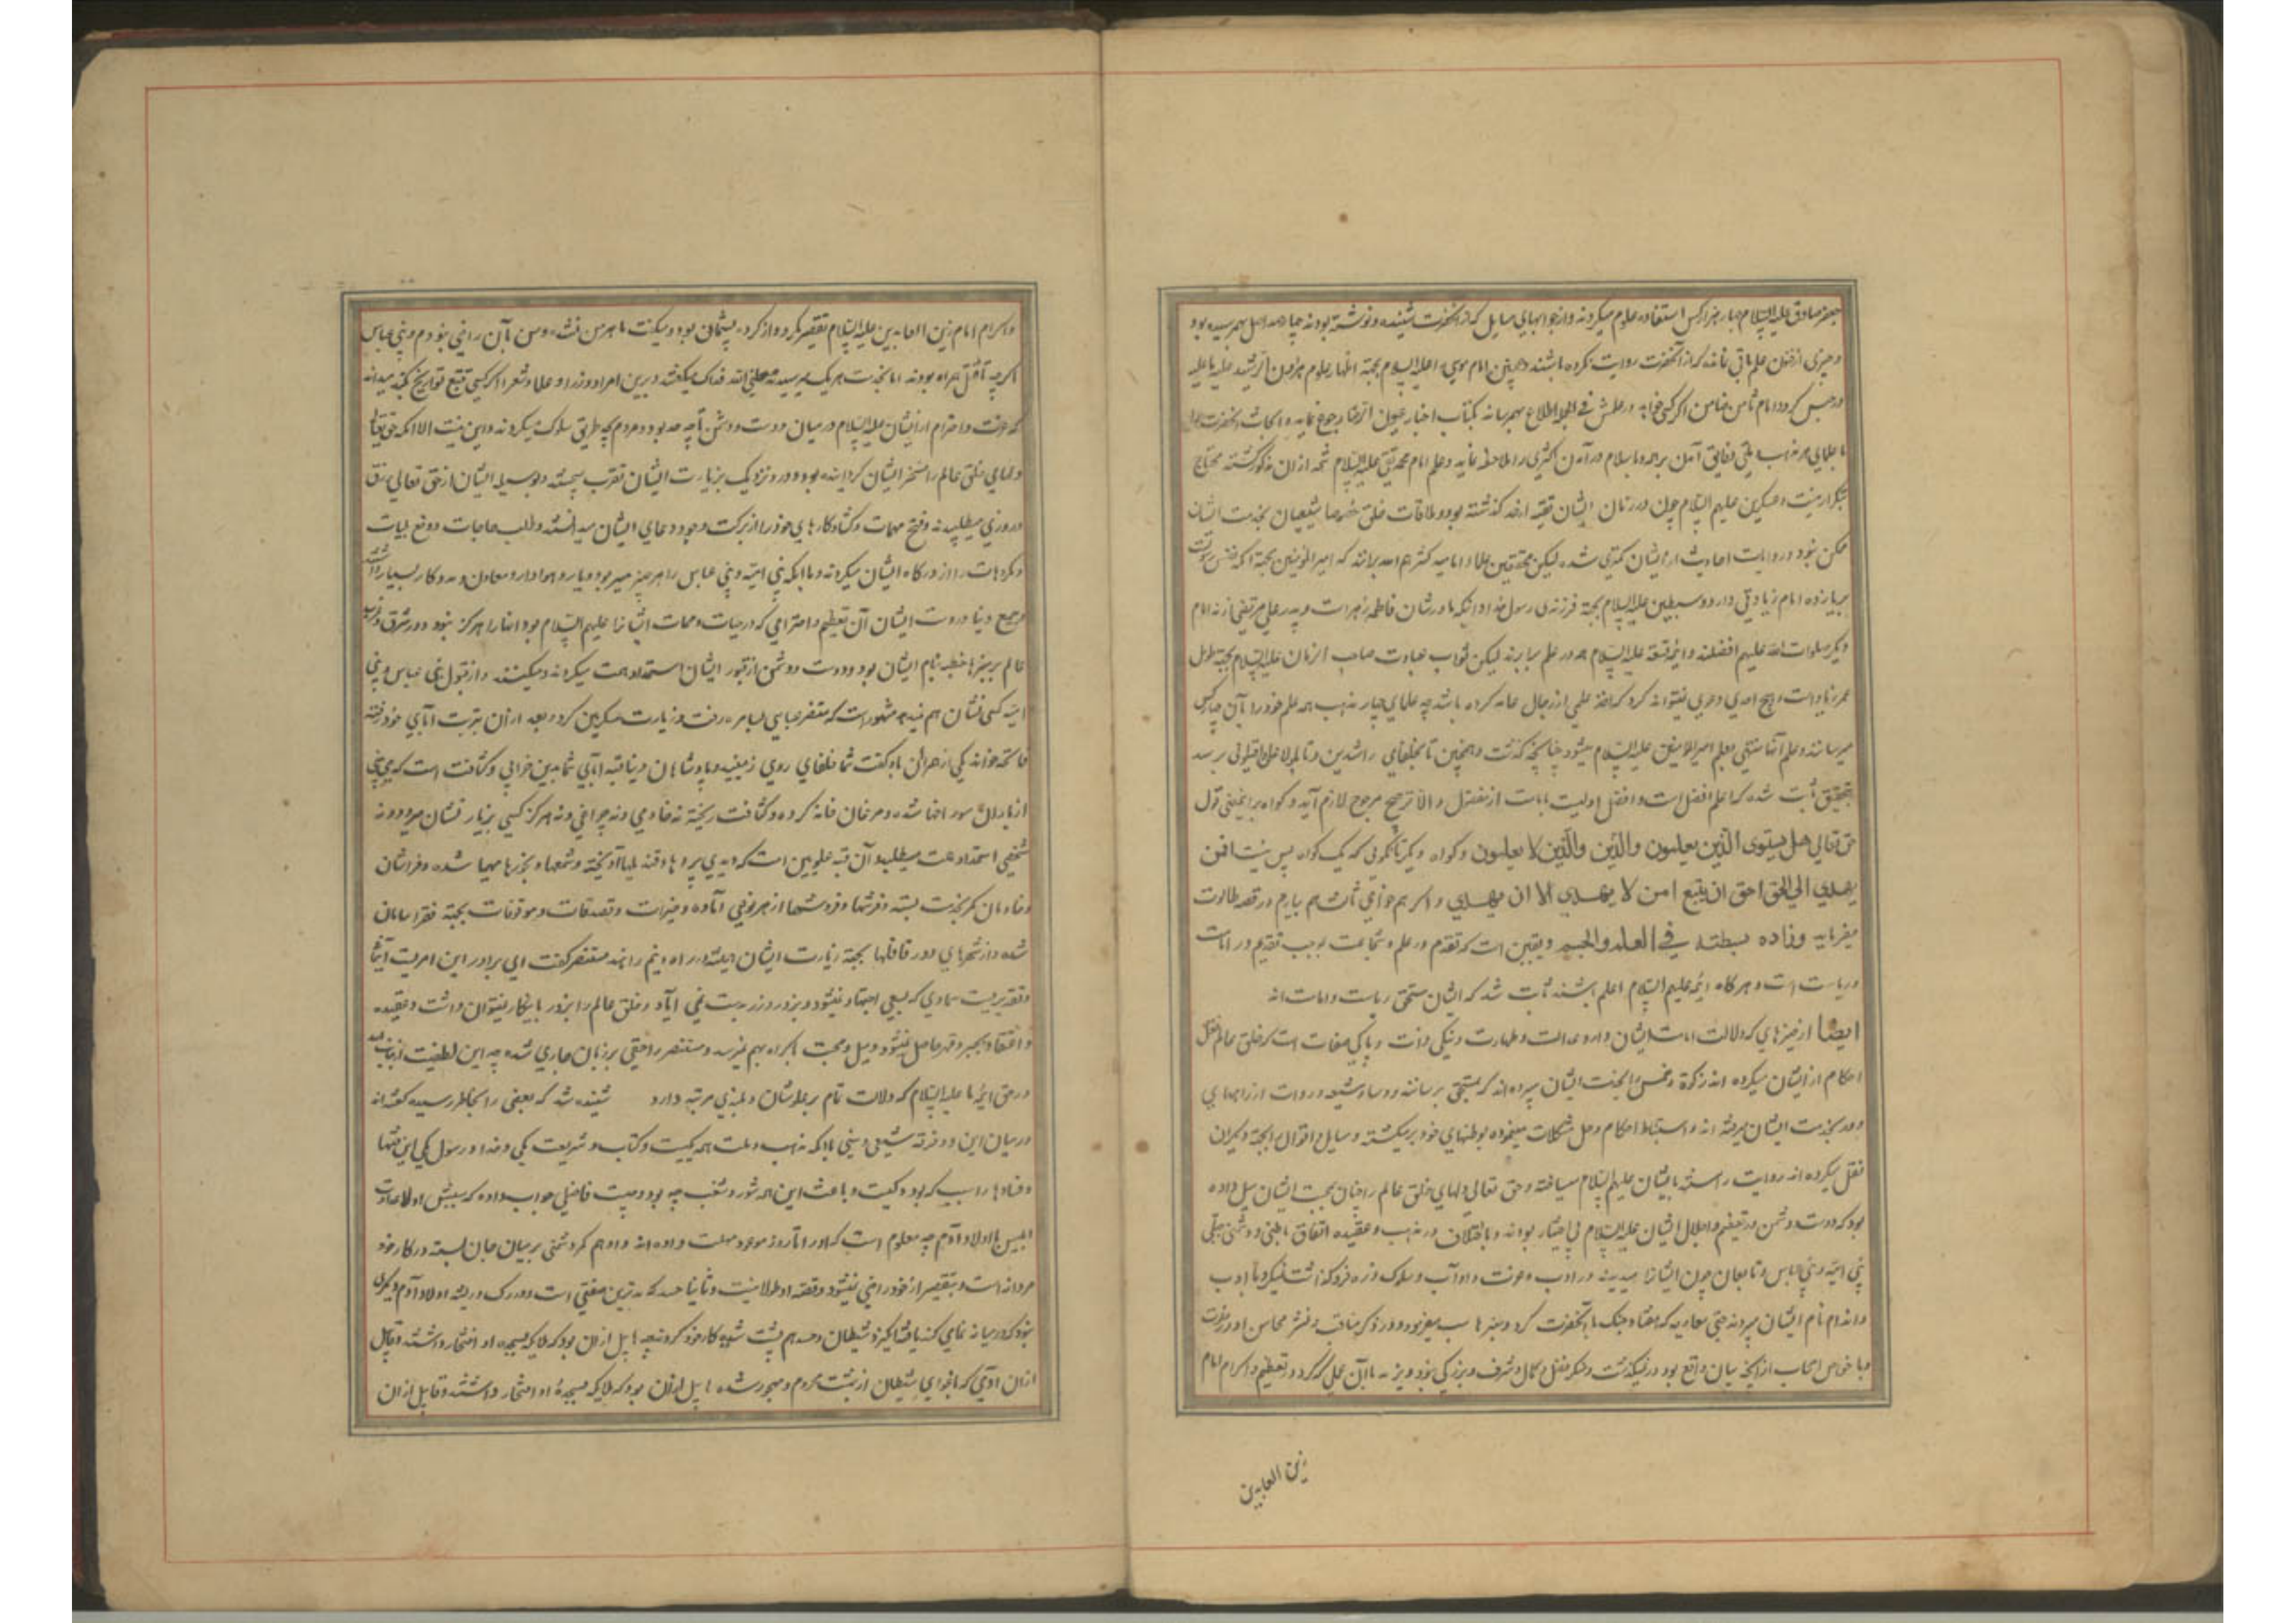 جعفر صادق علیه السلام چهار هزار کس استفاده علوم میکردند و از جوابهای مسایل که از آنحضرت شنیده و نوشته بودند چهارصد اصل بهم رسیده بود
و چیزی از فنون علم باقی نمانده که از آنحضرت روایت نکرده باشند و همچنین امام موسی علیه السلام بجهة اظهار علوم هرون الرشید علیه ما علیه
در حبس کرد و امام ثامن ضامن اگر کسی خواهد در علمش فی الجمله اطلاع بهم رساند بکتاب اخبار عیون الرضا رجوع نماید و
با علمای هر مذهب را ملاحظه نماید و علم امام محمد تقی علیه السلام شمه از ان مذکور گشته محتاج
بتکرار نیست و عسکریین علیهم السلام چون در زمان ایشان تقیه از حد گذشته بود و ملاقات خلق خصوصا شیعیان بخدمت ایشان
ممکن نبود و روایات احادیث از ایشان کمتری شده لیکن محققین علماء امامیه کثرهم الله برانند که امیر المؤمنین بجهة آنکه
بر یازده امام زیادتی دارد و سبطین علیه السلام بجهة فرزندی رسول خدا و اینکه مادرشان فاطمه زهراست و پدر علی مرتضی از نه امام
دیگر صلوات الله علیهم افضلند و ائمه تسعه علیه السلام همه در علم برابرند لیکن ثواب عبادت صاحب الزمان علیه السلام بجهة طول
عمر زیاد است و هیچ احدی دعوی نتوانند کرد که اخذ علمی از رجال عامه کرده باشد چه علمای چهار مذهب همه علم خود را بآن چهار کس
میرسانند و علم آنها منتهی بعلم امیر المؤمنین علیه السلام میشود چنانچه گذشت و همچنین تا بخلفای راشدین
بتحقیق ثابت شده که اعلم افضل است و افضل اولیست بامامت از مفضول و الا ترجیح مرجوح لازم آید و گواه بر اینمعنی قول
حق تعالی هل یستوی الذین یعلمون والذین والذین لا یعلمون و گواه دیگر تا نگوئی که یک گواه پس نیست افمن
یهدی الی الحق احق ان یتبع امن لا یهدی الا ان یهدی و اگر هم خواهی ثالث هم بیارم در قصه طالوت
میفرماید وزاده بسطة فی العلم والجسم و یقین است که تقدم در علم و شجاعت موجب تقدیم در امامت
و ریاست است و هرگاه ائمه علیهم السلام اعلم باشند ثابت شد که ایشان مستحق ریاست و امامت اند
ایضا از چیزهای که دلالت بامامت ایشان دارد عدالت و طهارت و نیکی ذات و پاکی صفات است که خلق عالم نقل
احکام از ایشان میکرده اند زکوة و خمس بخدمت ایشان میبرده اند که بمستحق برسانند و رؤساء شیعه و روات از راههای
دور بخدمت ایشان میرفته اند و استنباط احکام و حل مشکلات مینموده بوطنهای خود برمیگشته و مسایل و اقوال بجهة دیگران
نقل میکرده اند و روایت را مستند بایشان علیهم السلام میساخته و حق تعالی دلهای خلق عالم را چنان بمحبت ایشان میل داده
بود که دوست و دشمن در تعظیم و اجلال ایشان علیه السلام بی اختیار بودند و با اختلاف در مذهب و عقیده و اتفاق باطنی و دشمنی جبلی
بنی امیه و بنی عباس و تابعان چون ایشانرا میدیدند در ادب و عزت و آداب و سلوک ذره فروگذاشت نمیکرد و با ادب
نام ایشان میبردند حتی معاویه که هفتاد جنگ با آنحضرت کرد و بر منبرها سب میفرمود و در ذکر مناقب و نشر محاسن او
و با خواص اصحاب از آنچه بیان واقع بود در نمیگذشت و منکر فضل و کمال و شرف و بزرگی نبود و یزید با آن عملی که کرد در تعظیم و اکرام امام
زین العابدین
و اکرام امام زین العابدین علیه السلام تقصیر نکرد و از کرده پشیمان بود و میگفت با هر من نشده و من بآن راضی نبودم و بنی عباس
اگرچه همراه بودند اما بخدمت هر یک میرسیدند جعلنی الله فداک میگفتند و برین امرا و وزرا و علما و شعرا اگر کسی تتبع تواریخ کند میداند
که عزت و احترام ایشان علیه السلام در میان دوست و دشمن تا چه حد بود و مردم بچه طریق سلوک میکردند و این نیست الا آنکه حق تعالی
دلهای خلق عالم را مسخر ایشان گردانیده بود و دور و نزدیک بزیارت ایشان تقرب میجسته و بوسیله ایشان از حق تعالی رزق
و روزی میطلبیدند و فتح مهمات و گشاد کارهای خود را از برکت وجود و دعای ایشان میدانستند و طلب حاجات و دفع بلیات
و مکروهات را از درگاه ایشان میکردند و با آنکه بنی امیه و بنی عباس را هر چیز میسر بود و یار و هوادار و معاون و مددکار بسیار داشتند
و جمیع دنیا دوست ایشان آن تعظیم و احترامی که در حیات و ممات ایشانرا علیهم السلام بود آنها را هرگز نبود و در شرق و غرب
عالم بر منبرها خطبه بنام ایشان بود و دوست و دشمن از قبور ایشان استمداد همت میکردند و میکنند و از قبول بنی عباس و بنی
امیه کسی نشان هم نمیدهد مشهور است که مستنصر عباسی بسامره رفت و زیارت عسکریین کرد و بعد از ان بتربت آبای خود رفته
فاتحه خواند یکی از همراهان باو گفت شما خلفای روی زمینید و پادشاهان دنیا قبه آبای شما بدین خرابی و کثافت است که می بینی
از باران سوراخها شده و مرغان خانه کرده و کثافت ریخته نه خادمی و نه چراغی و نه هرگز کسی بزیارتشان میرود و نه
شخصی استمداد همت میطلبد و آن قبه علویین است که دیدی پردها و قندیلها آویخته و شمعها و بخورها مهیا شده و فراشان
و خادمان کمر بخدمت بسته و فرشها از هر نوعی آماده و خیرات و تصدقات و موقوفات بجهة فقرا سامان
شده و از شهرهای دور قافلها بجهة زیارت ایشان همیشه در راه میرانند مستنصر گفت ای برادر این امریست
و تقدیریست سماوی که بسعی و اجتهاد نمیشود و بزور و زر دست نمی آید و خلق عالم را بزور باینکار نمیتوان داشت و عقیده
و اعتقاد بجبر و قهر حاصل نمیشود و میل و محبت باکراه بهم نمیرسد و مستنصر را حقی بر زبان جاری شده چه این لطفیست از جانب
در حق ائمه ما علیه السلام که دلالت تام بر علو شان و بلندی مرتبه دارد شنیده شد که بعضی را بخاطر رسیده گفته اند
در میان این دو فرقه شیعی و سنی با آنکه مذهب و ملت همه یکیست و کتاب و شریعت یکی و خدا و رسول یکی این فتنها
و فسادها را سبب که بود و کیست و باعث این همه شور و شغب چه بود و چیست فاضلی جواب داده که سببش اولا عداوت
ابلیس با اولاد آدم چه معلوم است که او را تا روز موعود مهلت داده اند و او هم کمر دشمنی بر میان جان بسته در کار خود
مردانه است و بتقصیر از خود راضی نمیشود و قصه او طولانیست و ثانیا حسد که بدترین صفتی است و در رگ و ریشه اولاد آدم دیگری
نبود که در میانه شیطان و حسد هم پشت شده کار خود کردند چه
ازان آدمی که باغوای شیطان از بهشت محروم و مهجور شده